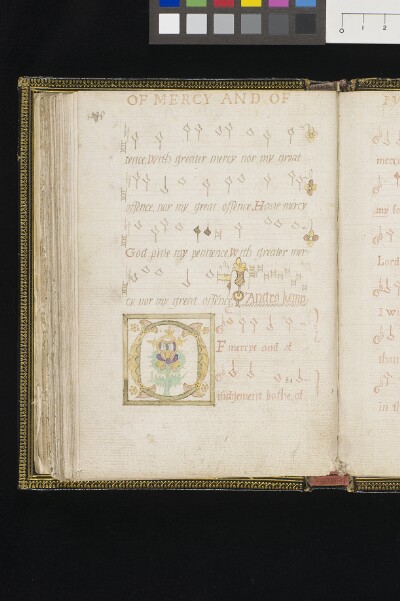 OF MERCY AND OF
tence. With greater mercy nor my great
offence, nor my great offence. Have mercy
God pitie my penitence. With greater mer
cy nor my great offence. Andro kemp
O
F mercye and of
iudgement bothe, of
mercy
my
Lord
I wi
than
in th
0 1 2